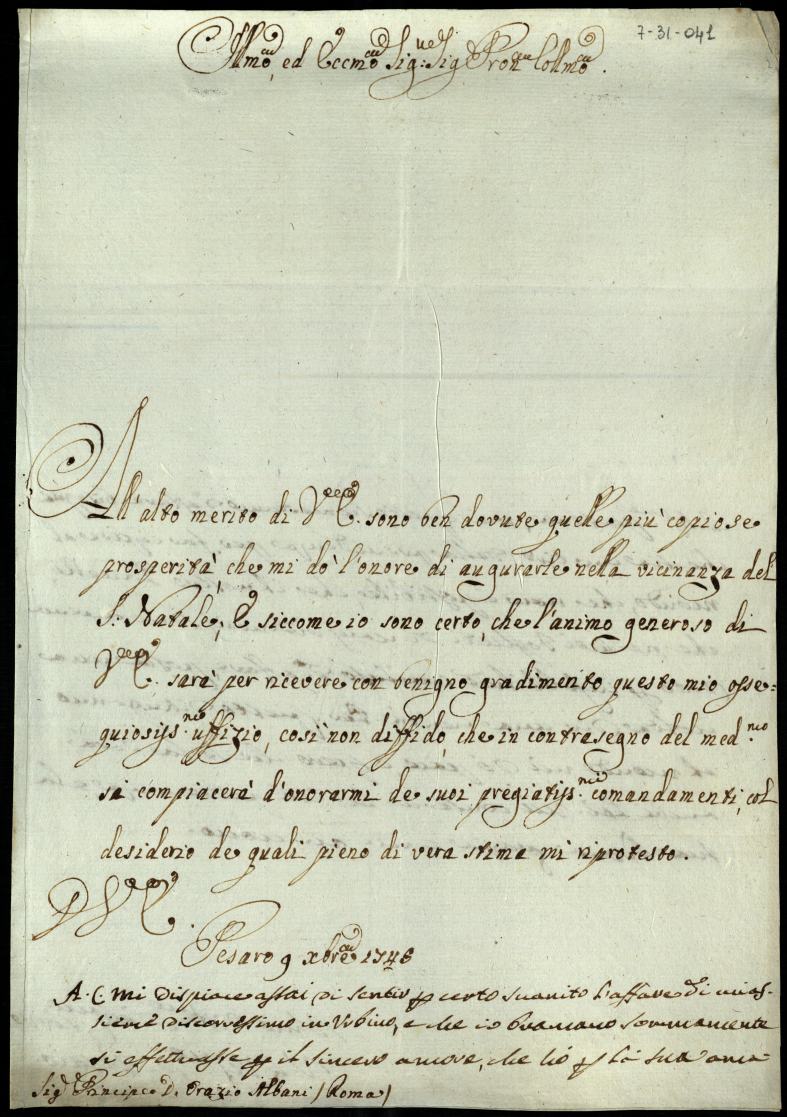 7-31-041
Illmo, ed Eccmo Sig: Sig Pron Collmo.
All'alto merito di V.E. sono ben dovute quelle più copiose
prosperità, che mi dò l'onore di augurarle nella vicinanza del
S. Natale; E siccome io sono certo, che l'animo generoso di
V.E. sarà per ricevere con benigno gradimento questo mio osse=
quiosiss.mo uffizio, così non diffido, che in contrasegno del med.mo
si compiacerà d'onorarmi de suoi pregiatiss.mi comandamenti, col
desiderio de quali pieno di vera stima mi riprotesto.
D V.E.
Pesaro 9 xbre 1746
A.C. Mi dispiace assai di sentir p certo suanito l'affare di cui as-
sieme discoressimo in Urbino, e che io bramavo sommamente
si effettuasse p il sincero amore, che hò p la sua
Sig Principe D. Orazio Albani (Roma)